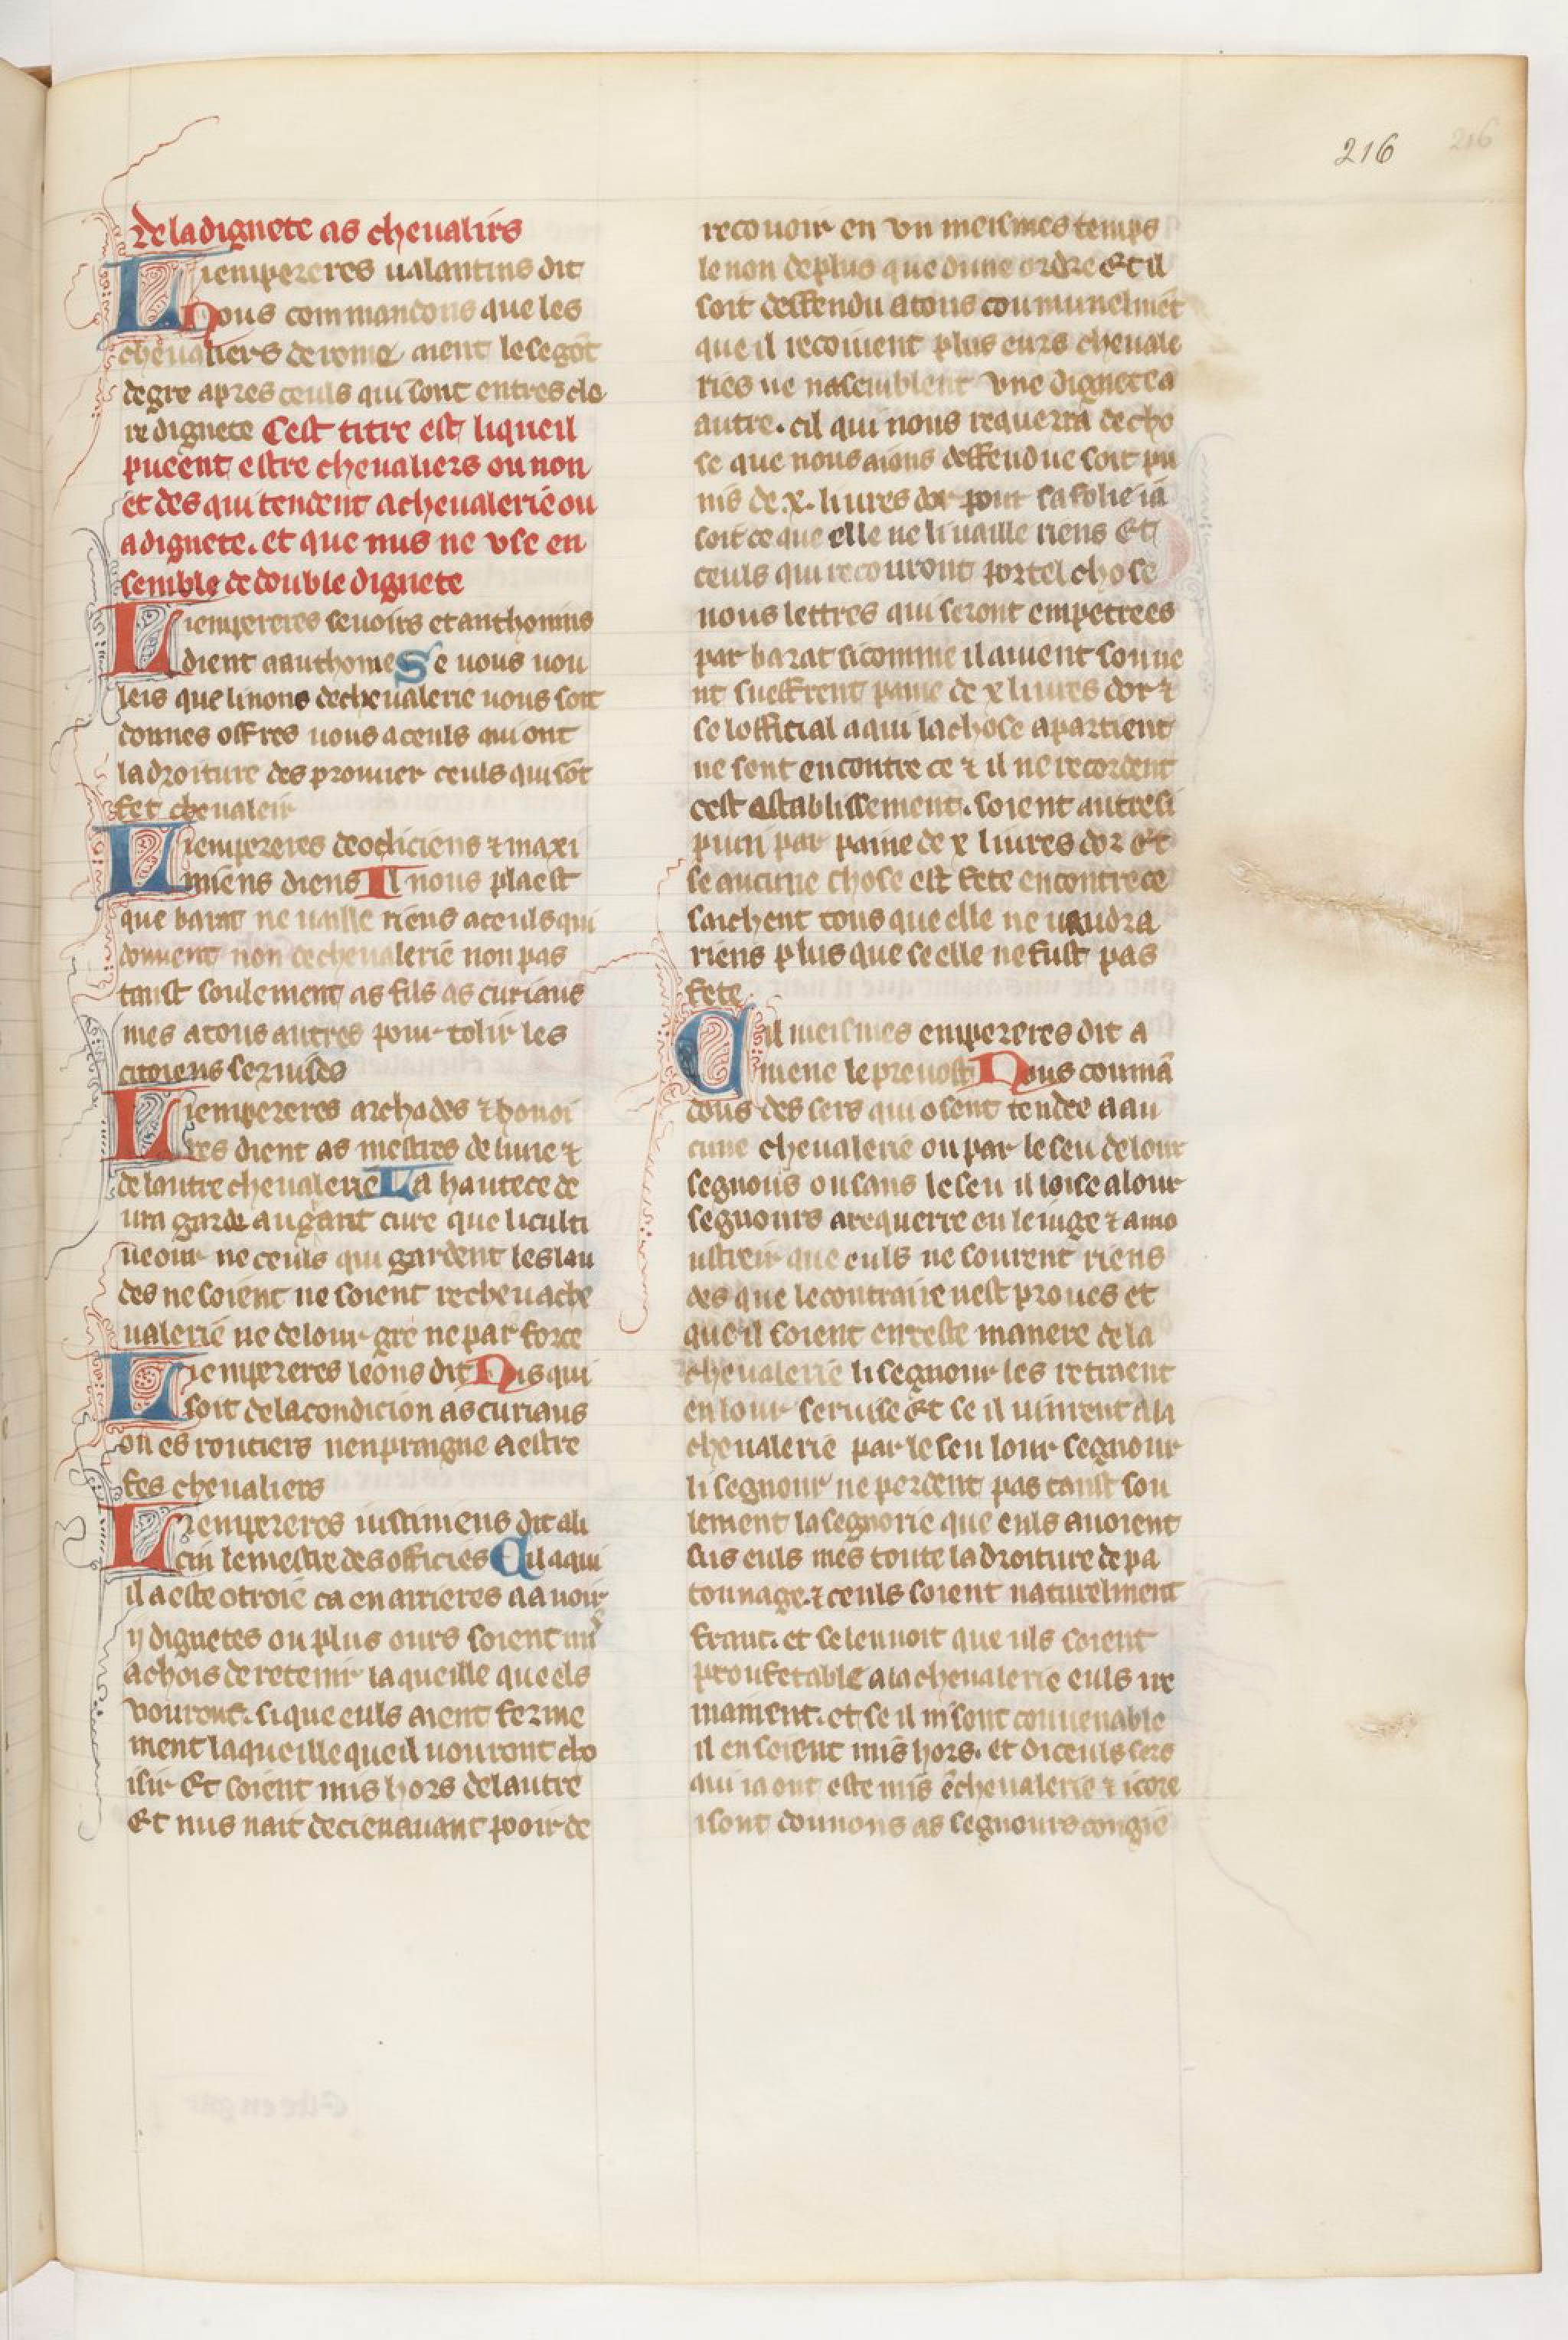 216
De la dignete as chevalirs
Li empereres valantins dit
Nous commandons que les
chevaliers de rome aient le segōt
degre apres ceuls qui sont entres cle
re dignete Cest titre est liqueil
pueent estre chevaliers ou non
et des qui tendent a chevalerie ou
a dignete. et que nus ne use en
semble de double dignete
Li empereres sevoirs et anthonins
dient a authome Se vous vou
leis que li nons de chevalerie vous soit
donnes offres vous a ceuls qui ont
la droiture des prouver ceuls qui sōt
fet chevaleir
Li empereres deocliciens ⁊ maxi
miens diens Il nous plaest
que barat ne vaille riens a ceuls qui
donnent non de chevalerie non pas
tanst soulement as fils as curiaus
mes a tous autres pour tolir les
citoiens servises
Li empereres archades ⁊ honoi
res dient as mestres de lune ⁊
de lautre chevalerie La hautece de
vra garde au grant cure que li culti
veour ne ceuls qui gardent les lau
des ne soient ne soient recheu a che
valerie ne de lour gre ne par force
Li empereres leons dit Nis qui
soit de la condicion as curiaus
ou es routiers nenpraigne a estre
fes chevaliers
Li empereres iustiniens dit a li
cin le mestre des offices Cil a qui
il a este otroie ca en arrieres a avoir
ij dignetes ou plus ours soient mis
a chois de retenir la queille que els
vouront. si que euls aient ferme
ment la queille que il vouront cho
isir Et soient mis hors de lautre
Et nus nait decienavant pooir de
recovoir en un meismes temps
le non de plus que dune ordre Et il
soit deffendu a tous coumunelmēt
que il recoivent plus eurs chevale
ries ne nasemblent une dignete a
autre. cil qui nous requerra de cho
se que nous aions deffendue soit pu
nis de .x. livres dor pour sa folie ia
soit ce que elle ne li vaille riens Et
ceuls qui recouront por tel chose
nous lettres qui seront empetrees
par barat si comme il avient souve
nt sueffrent paine de x livres dor ⁊
se lofficial a qui la chose apartient
ne sont encontre ce ⁊ il ne recordent
cest establissement. soient autresi
puni par paine de x livres dor Et
se aucune chose est fete encontre ce
saichent tous que elle ne vaudra
riens plus que se elle ne fust pas
fete
Cil meismes empereres dit a
mene le prevost Nous coumā
dons des sers qui osent tendre a au
cune chevalerie ou par le seu de lour
segnous ou sans le seu il loise a lour
segnours a requerre en le iuge ⁊ a mo
ustreir que euls ne sourent riens
des que le contraire nest proves et
que il soient en ceste manere de la
chevalerie li segnour les retraent
en lour servise Et se il vinrent a la
chevalerie par le seu lour segnour
li segnour ne perdent pas tanst sou
lement la segnorie que euls avoient
sus euls mes toute la droiture de pa
tonnage. ⁊ ceuls soient naturelment
franc. et se len voit que ils soient
proufetable a la chevalerie euls ire
mainent. et se il ni sont convenable
il en soient mis hors. et diceuls sers
qui ia ont este mis ē chevalerie ⁊ icore
i sont donnons as segnours congie